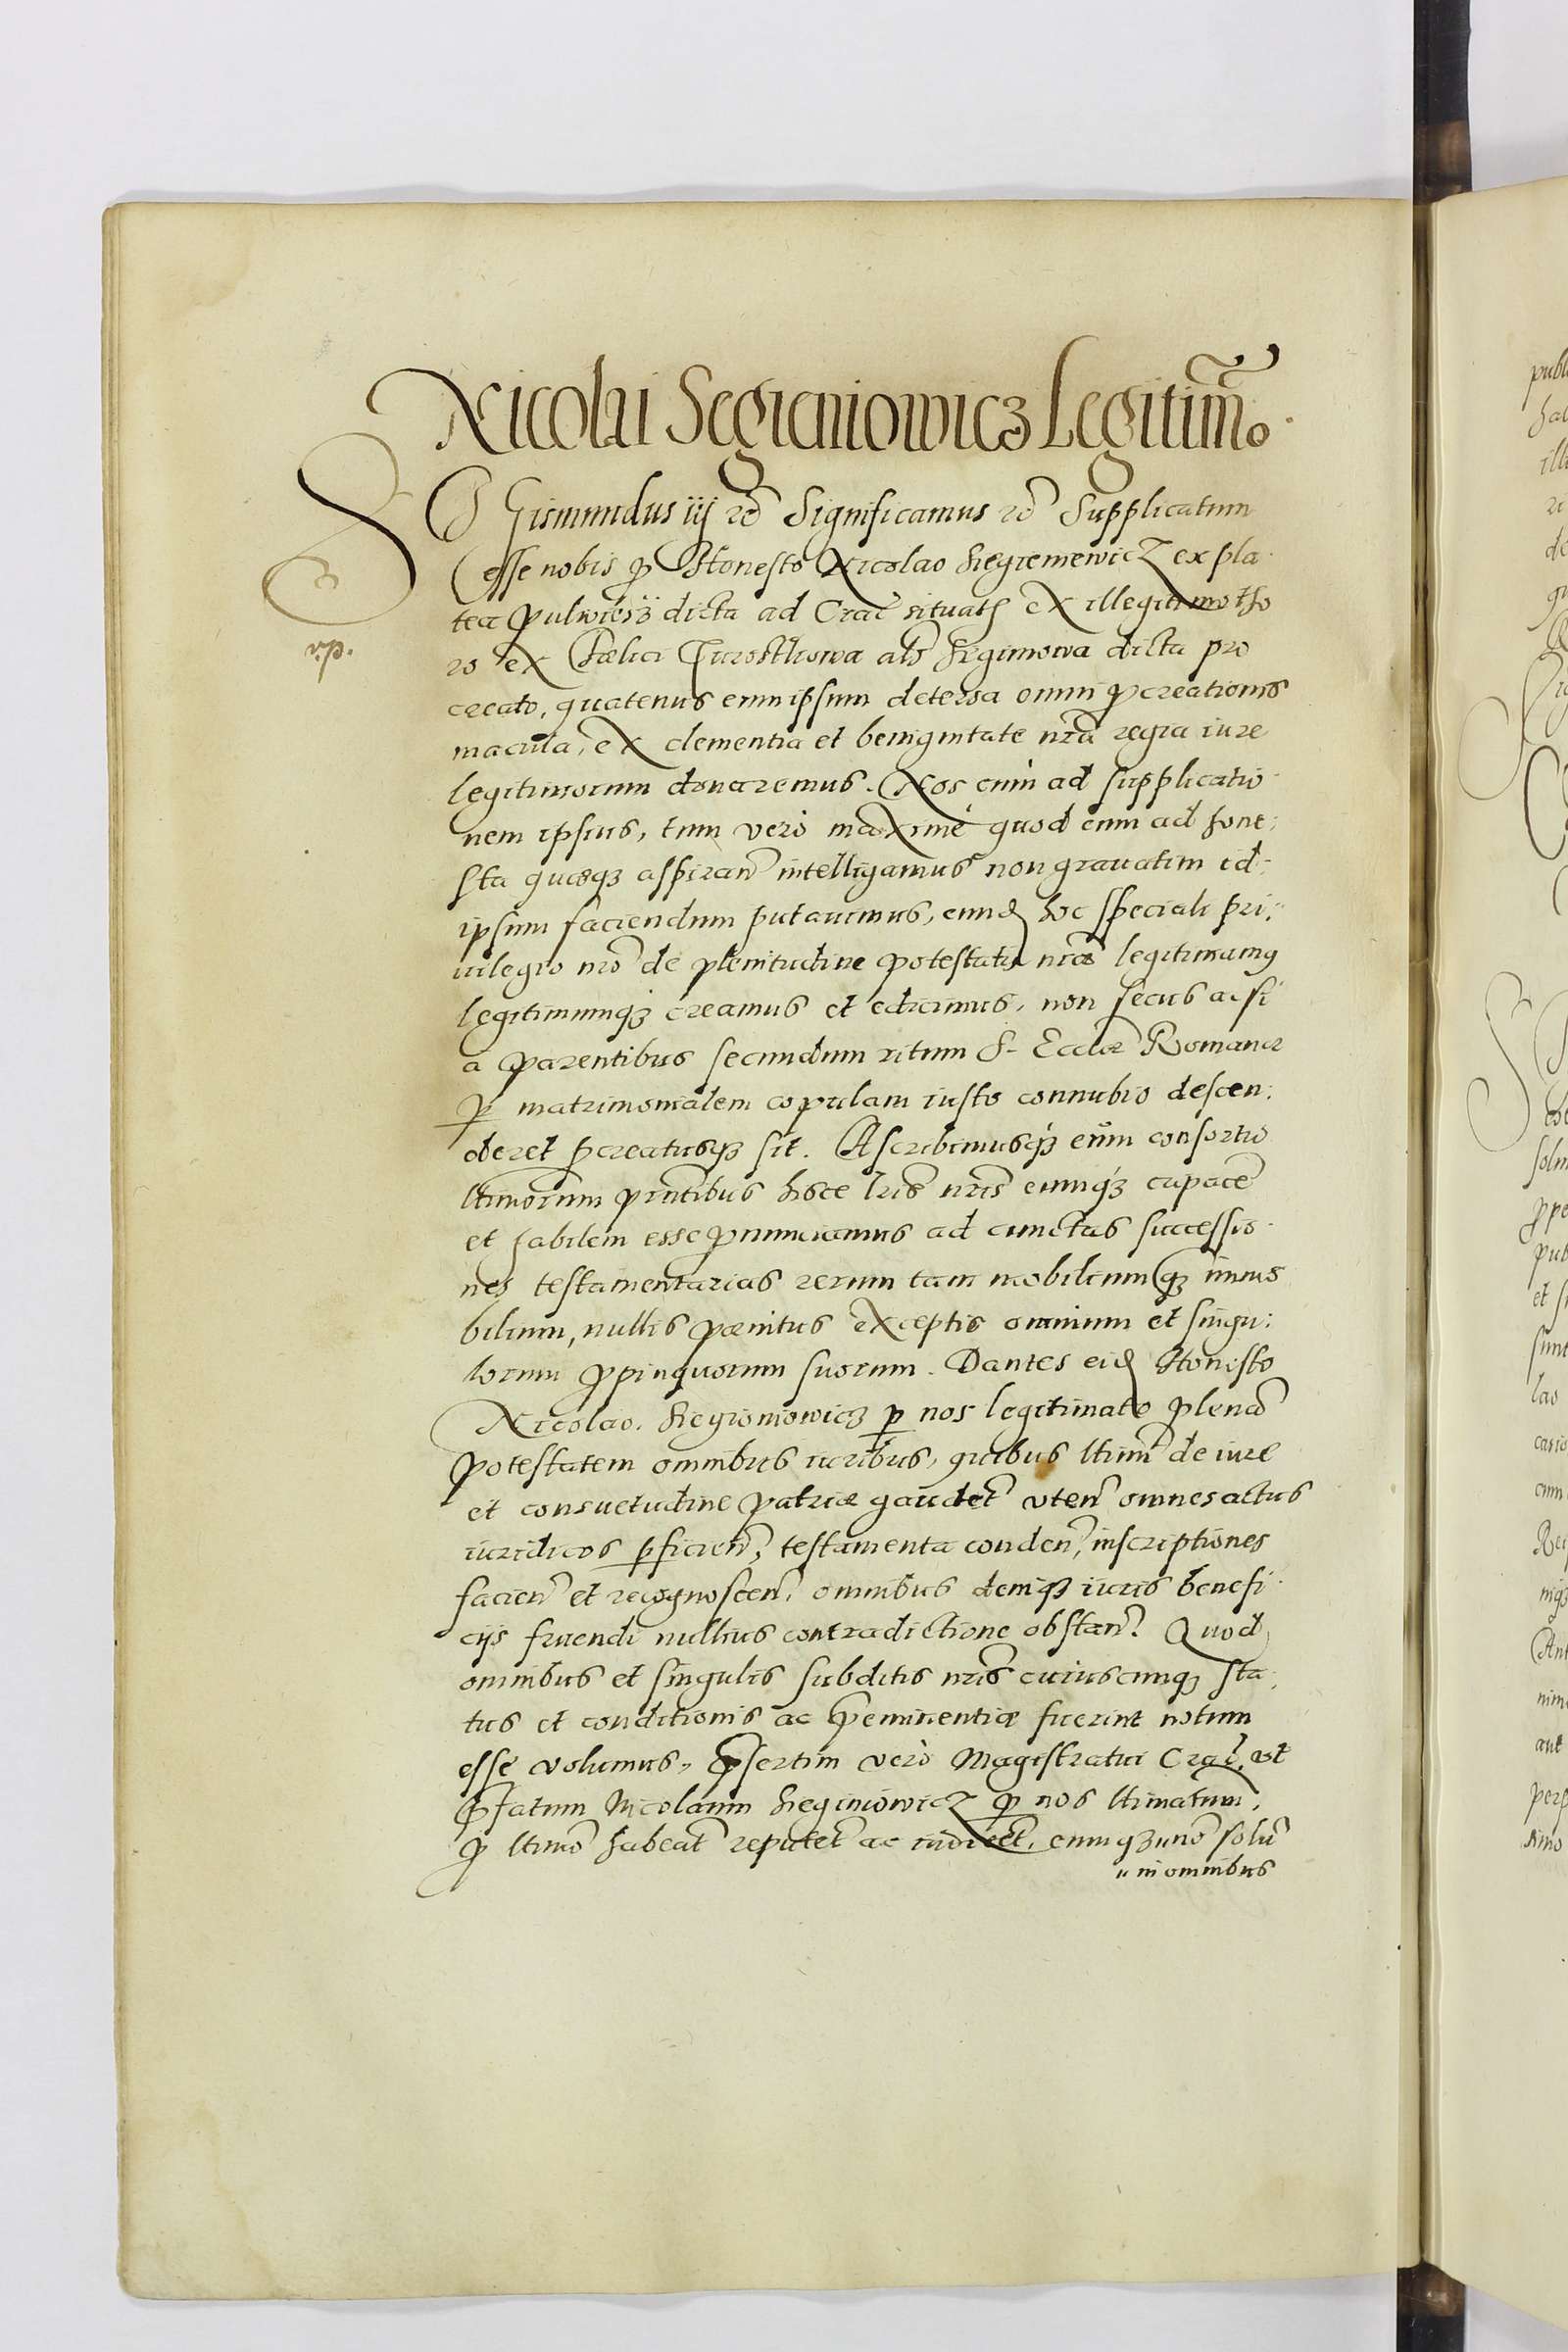 Nicolai Segieniowicz Legitimo
Sigismundus iij etc Significamus etc Supplicatum
esse nobis p Honesto Nicolao Siegieniewicz ex pla
tea pulwiesz dicta ad Crac situata ex illegitimo tho
ro ex Foelici Jurosthowa als Segimowa dicta pro
creato, quatenus eum ipsum detersa omni pcreationis
macula, ex clementia et benignitate nra regia iure
legitimorum donaremus. Nos enim ad supplicatio
nem ipsius, tum vero maxime quod eum ad hone:
sta quaeqz aspiran intelligamus non gravatim id
ipsum faciendum putavimus, eund hoc speciali pri:
uilegio nro de plenitudine potestatis nrae legitimamus
legitimumqz creamus et edicimus, non secus ac si
a parentibus secundum ritum S. Eccliae Romanae
p matrimonialem copulam iusto connubio descen:
deret pcreatusqz sit. Ascribimusqz eum consortio
ltimorum pntibus hisce lris nris eumqz capace
et habilem esse pnunciamus ad cunctas successio
nes testamentarias rerum tam mobilium qz immo
bilium, nullis poenitus exceptis omnium et singu:
lorum ppinquorum suorum. Dantes eid Honesto
Nicolao Siegioniowicz p nos legitimato plena
potestatem omnibus iuribus, quibus ltimi de iure
et consuetudine patriae gaudet uten omnes actus
iuridicos pficien, testamenta conden, inscriptiones
facien et recognoscen, omnibus deniqz iuris benefi
cijs fruendi nullius contradictione obstan. Quod
omnibus et singulis subditis nris cuiuscunqz sta
tus et conditionis ac preminentiae fuerint notum
esse volumus, psertim vero Magistratui Crac. ut
pfatum Nicolaum Sieginiowicz p nos ltimatum,
p ltimo habeat reputet ac iudicet, eumqz no solu
in omnibus
v.p.